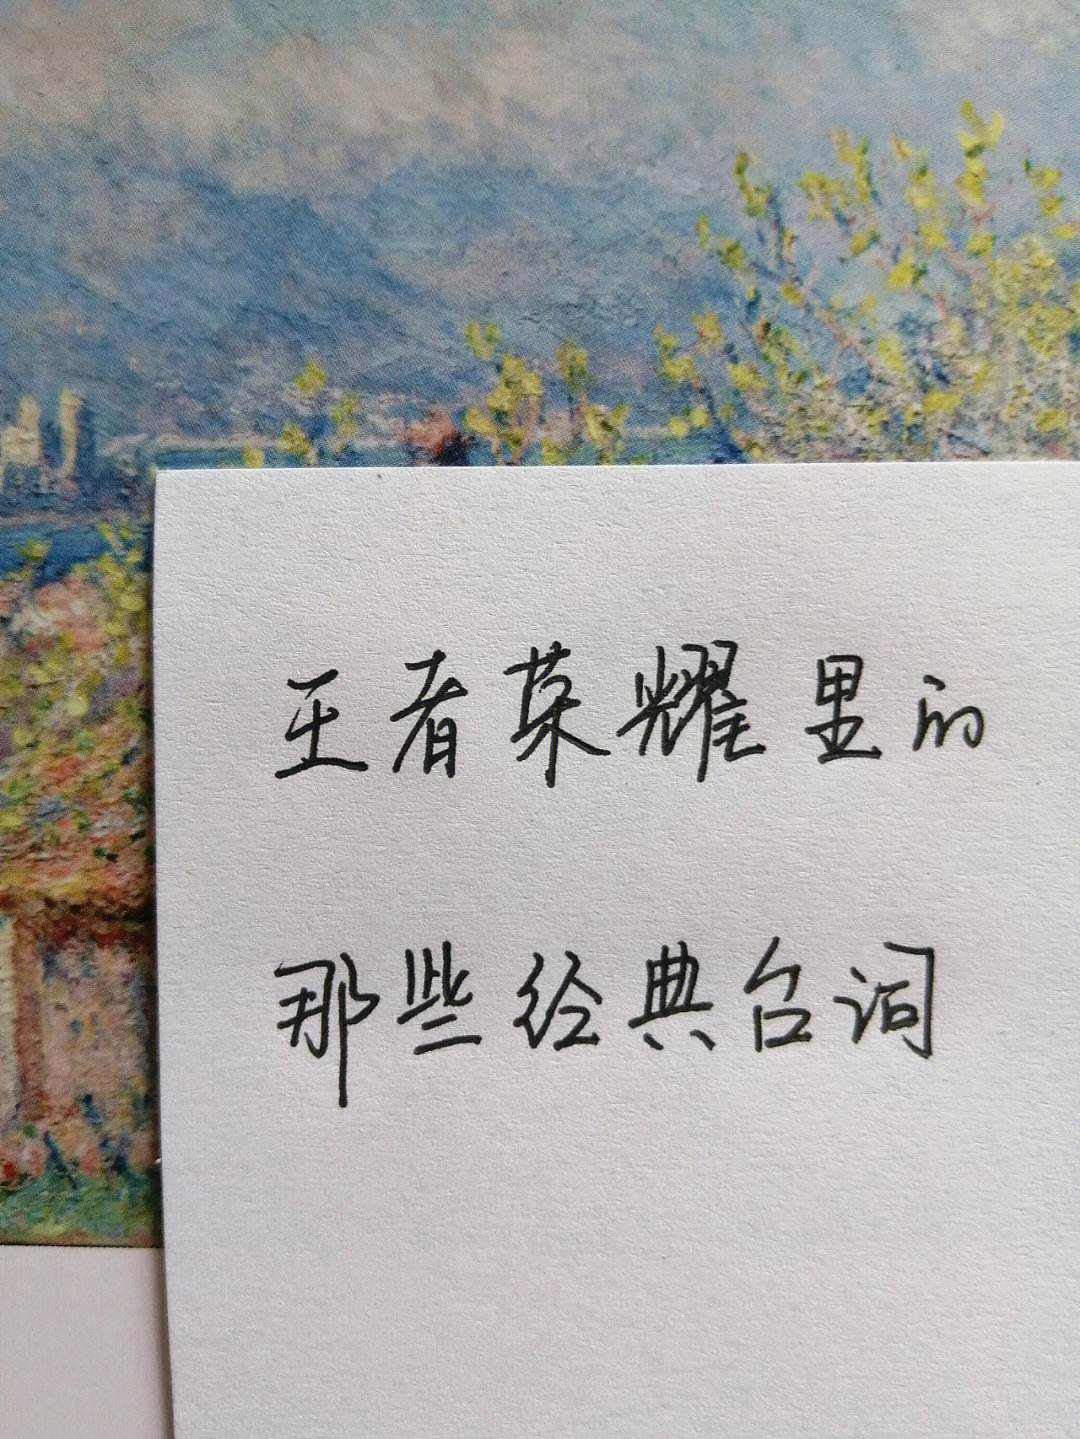 王者荣耀里的
那些经典台词